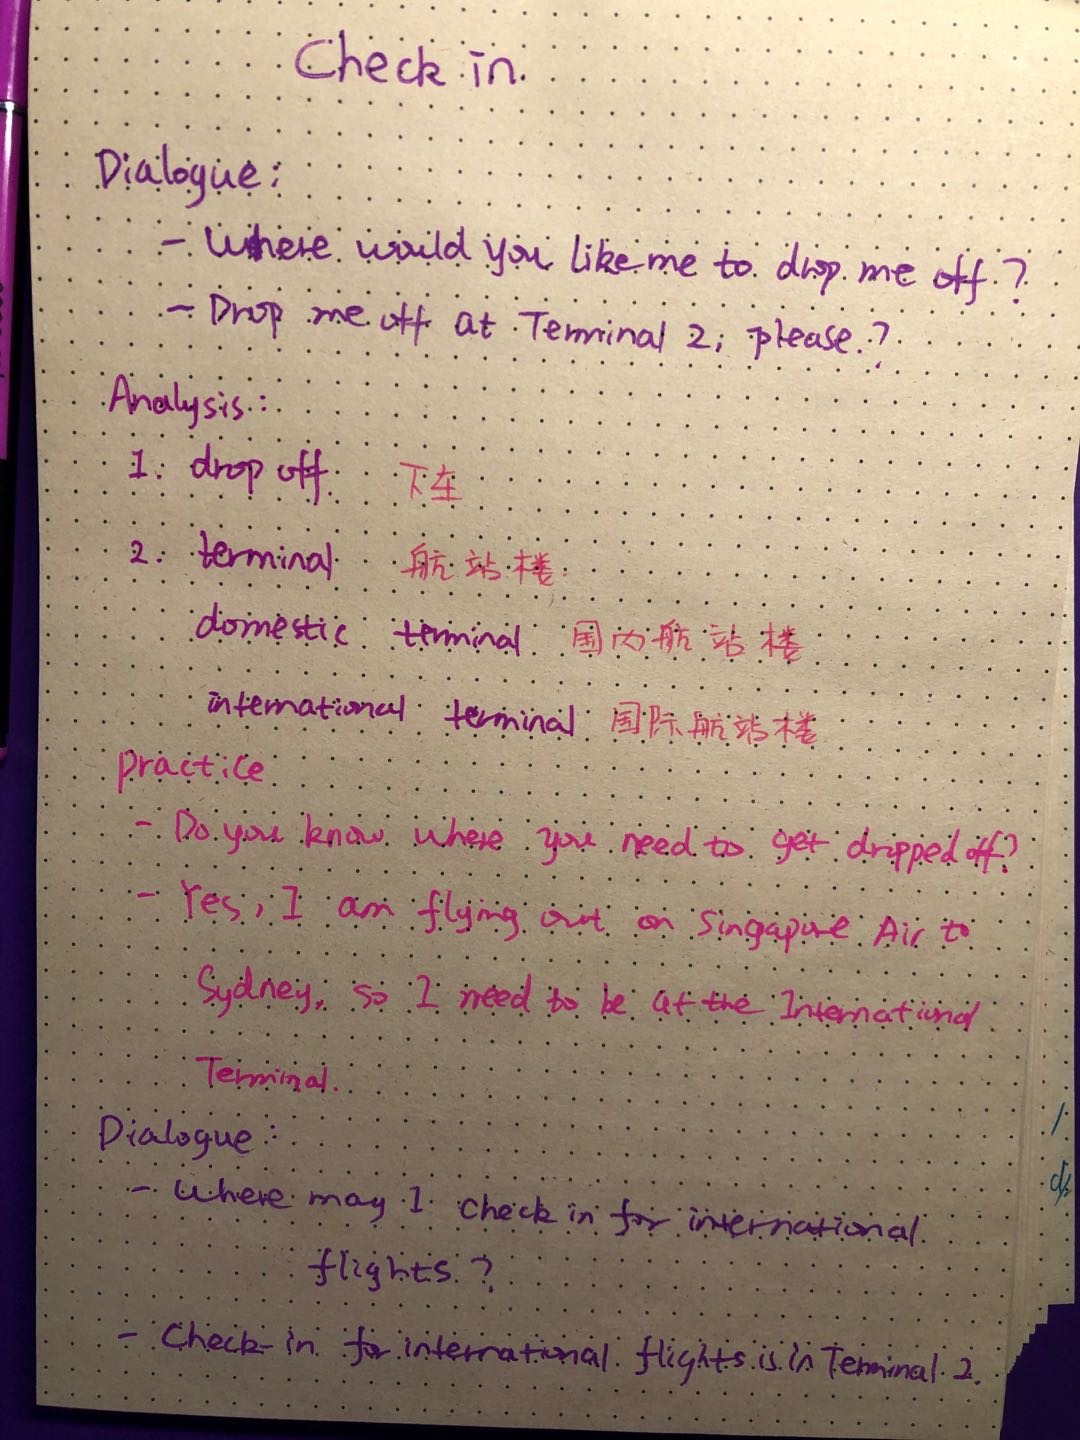 Check in.
Dialogue:
- Where would you like me to drop me off?
- Drop me off at Terminal 2, please.?
Analysis:
1. drop off. 下车
2. terminal 航站楼
domestic terminal 国内航站楼
international terminal 国际航站楼
practice
- Do you know where you need to get dropped off?
- Yes, I am flying out on Singapore Air to
Sydney, so I need to be at the International
Terminal.
Dialogue:
- Where may I check in for international
flights?
- Check-in for international flights is in Terminal 2.